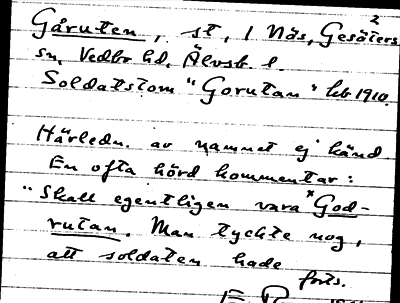 Gåruten, st, 1 Näs, Gesäters
2
sn, Vedbo hd, Älvsb l.
Soldatstom "Gorutan" heb 1910.
Härledn. av namnet ej känd
En ofta hörd kommentar:
"Skall egentligen vara *God-
rutan. Man tyckte nog,
att soldaten hade
forts.